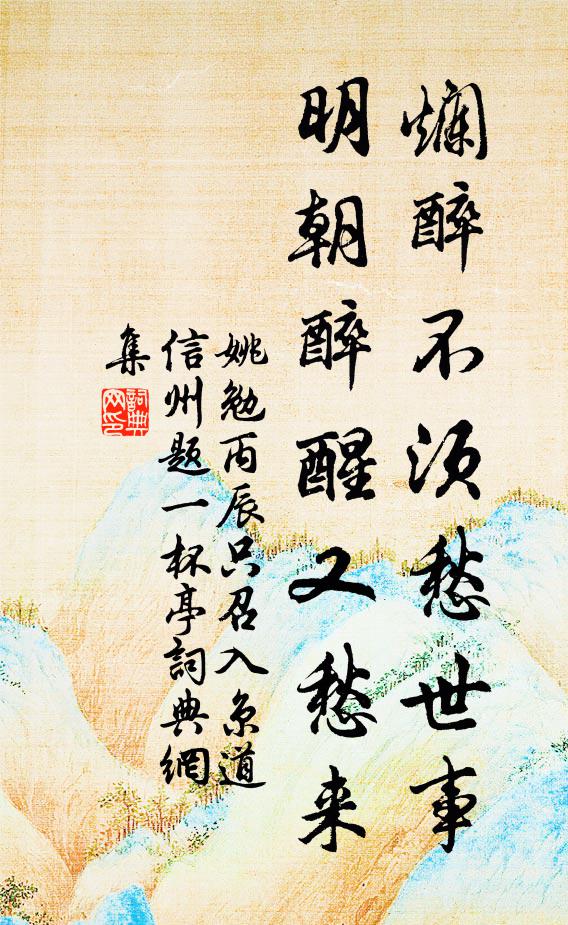 烂醉不须愁世事
明朝醉醒又愁来
姚勉丙辰只召入京道
信州题一杯亭詞典網
集
詞典
网印